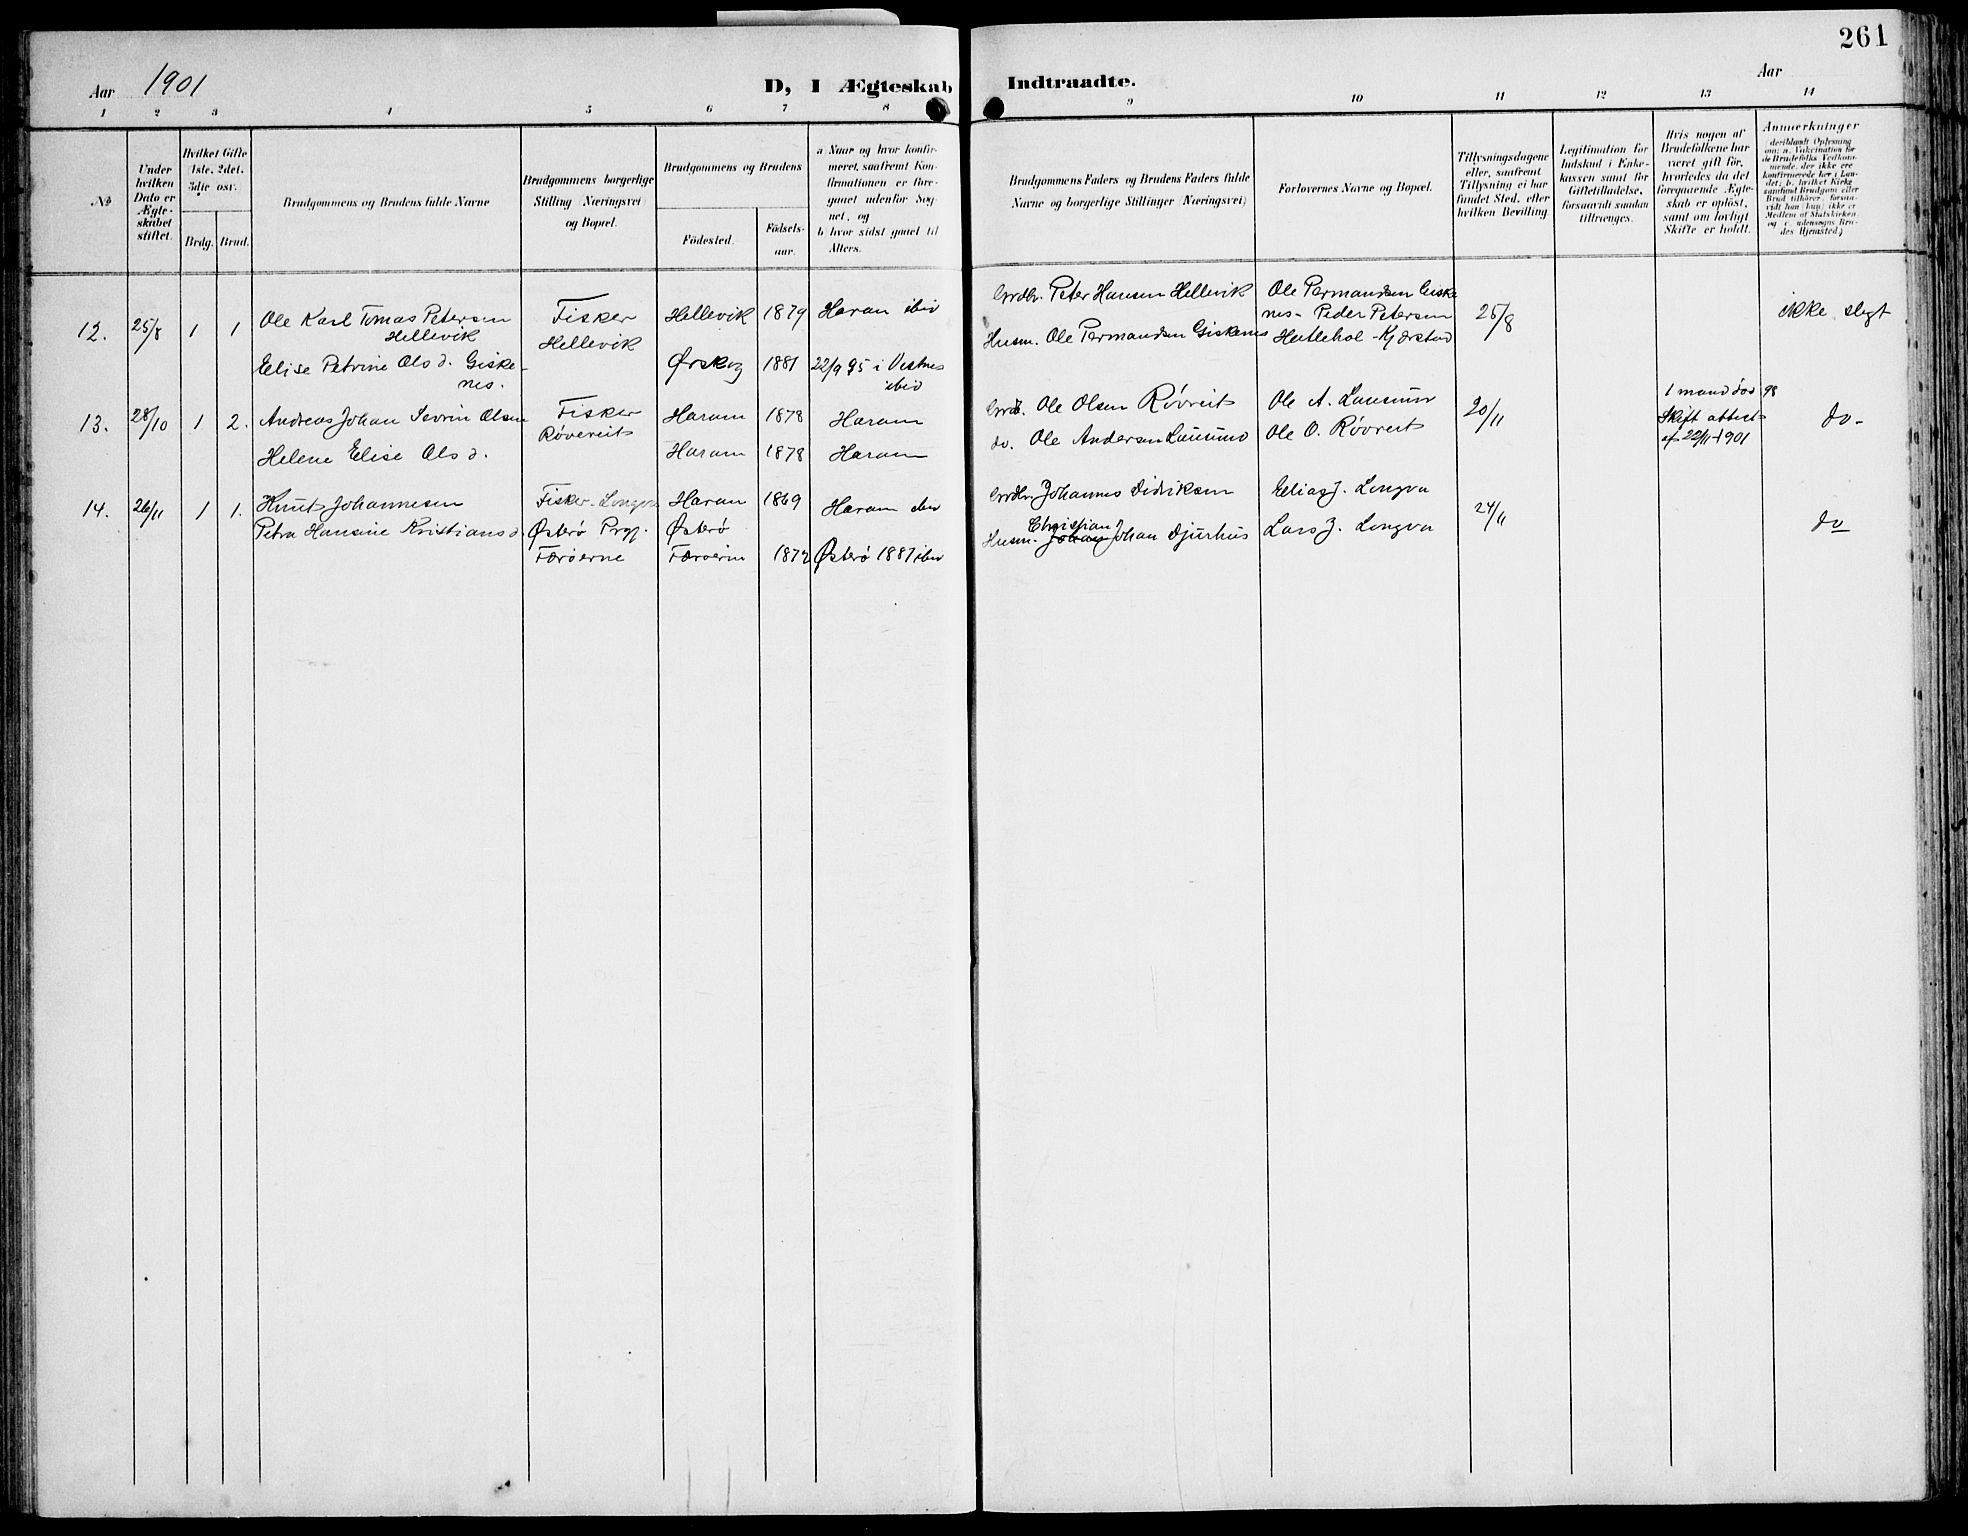 261
Aar 1901
D, I Ægteskab Indtraadte.
Aar
1 2 3 4 5 6 7 8 9 10 11 12 13 14
№
Under hvilken Dato er Ægteskabet stiftet.
Hvilket Gifte 1ste, 2det, 3die osv.
Brdg. Brud.
Brudgommens og Brudens fulde Navne
Brudgommens borgerlige Stilling Næringsvei og Bopæl.
Brudgommens og Brudens
Födested. Födselsaar.
a Naar og hvor konfirmeret, saafremt Konfirmationen er foregaaet udenfor Sognet, og
b hvor sidst gaaet til Alters.
Brudgommens Faders og Brudens Faders fulde Navne og borgerlige Stillinger Næringsvei)
Forlovernes Navne og Bopæl.
Tillysningsdagene eller, saafremt Tillysning ei har fundet Sted, efter hvilken Bevilling
Legitimation for Indskud i Enkekassen samt for Giftetilladelse, forsaavidt saadan tiltrænges.
Hvis nogen af Brudefolkene har været gift før, hvorledes da det foregaaende Ægteskab er oplöst, samt om lovligt Skifte er holdt.
Anmerkninger
12. 25/8 1 1 Ole Karl Tomas Petersen Hellevik
Fisker Hellevik
Hellevik 1879 Haram ibid
Peter Hansen Hellevik
Ole Permandsen Giskenes - Peder Petersen
25/8
ikke slegt
Elise Petrine Ols d. Giskenes.
Ørskog 1881 22/9 95 i Vestnes ibid
Husm. Ole Permandsen Giskenes
13. 28/10 1 2. Andreas Johan Sevrin Olsen
Fisker Røvereit
Haram 1878 Haram
Ole Olsen Røvreit
Ole A. Lausund
20/11
1 mand død 98
Skift attest af 22/11 1901
do-
Helene Elise Ols d.
Haram 1878 Haram
do. Ole Andersen Lausund
Ole O. Røvreit
14. 26/11 1 1. Knut Johannesen
Fisker - Longva
Haram 1869 Haram ibid
Johannes Didriksen
Elias J. Longva
24/11
do
Petra Hansine Kristians d.
Østerø Prgj. Færøerne
Østerø Færøerne 1872 Østerø 1887 ibid
Husm. Christian Johan Djurhus
Lars J. Longva